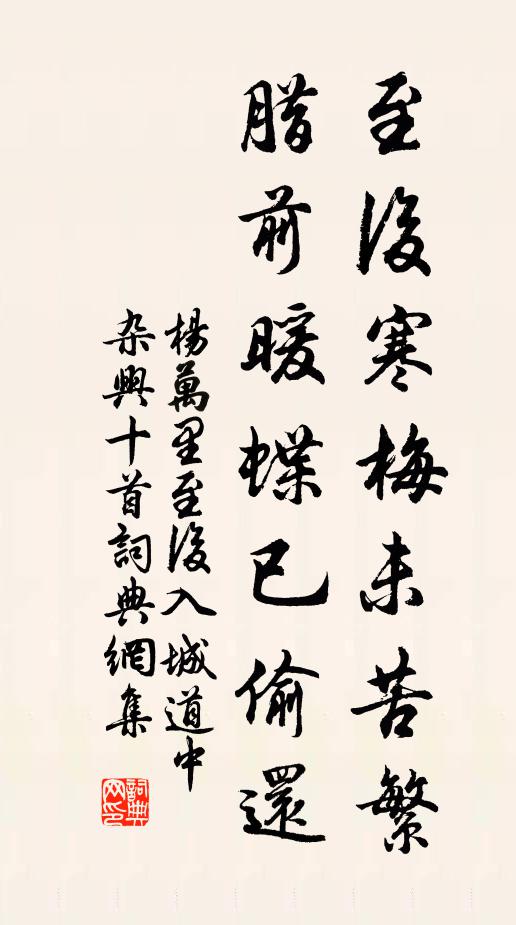 至後寒梅未苦繁
腊前暖蝶已偷還
楊萬里至後入城道中
杂興十首詞典網集
詞典
网印